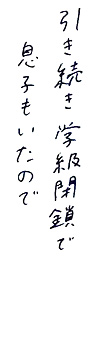 引き続き学級閉鎖で
息子もいたので